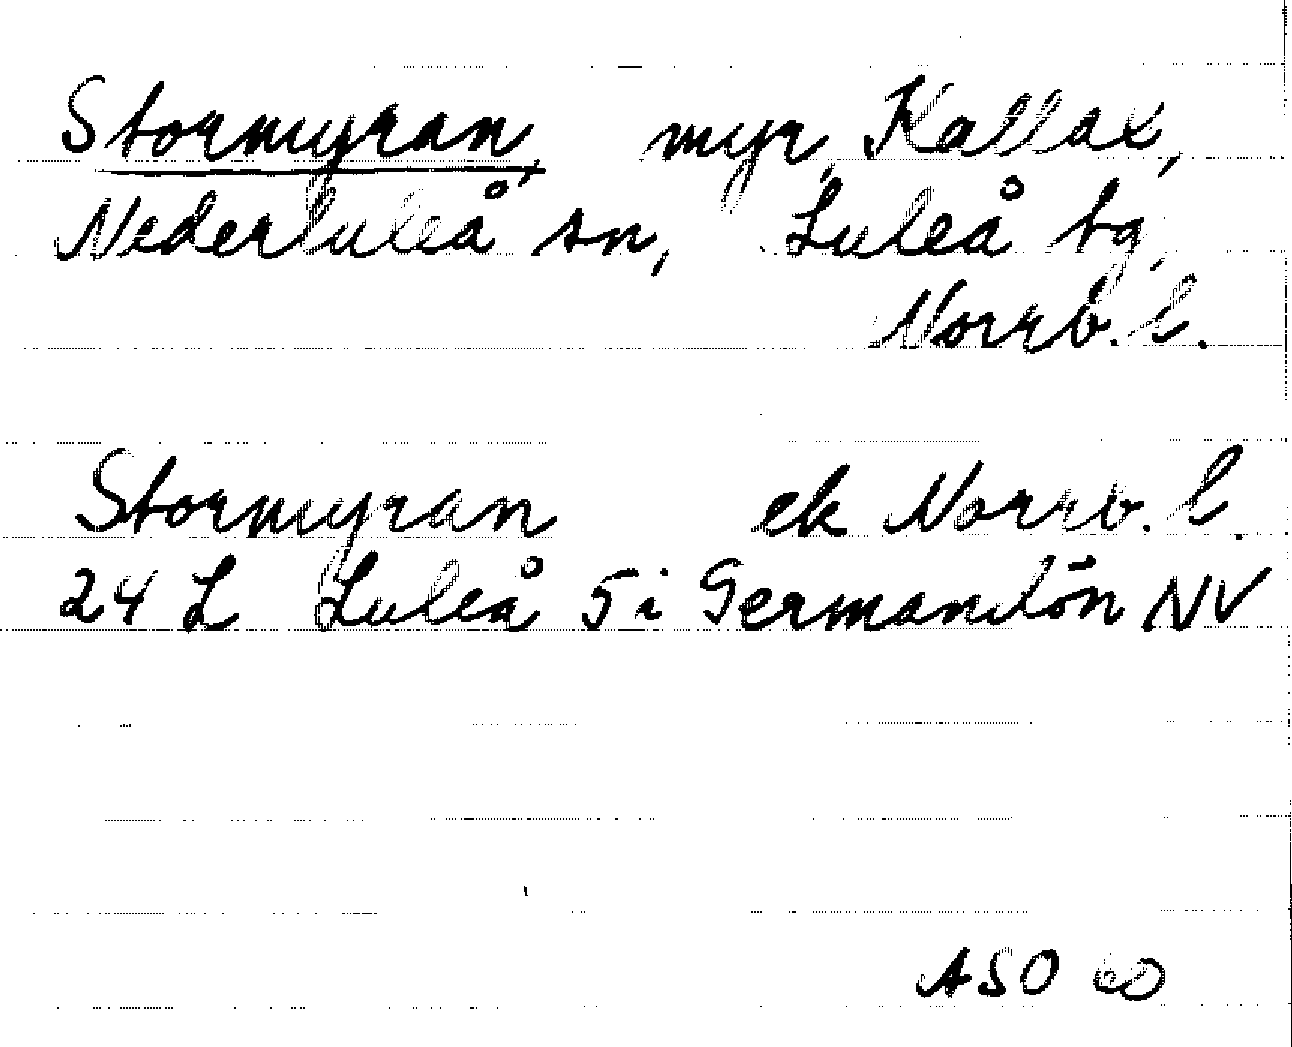 Stormyran, myr, Kallax,
Nederluleå sn, Luleå tg,
Norrb. l.
Stormyran ek Norrb. l.
24 L Luleå 5i Germandön NV
ASO 60